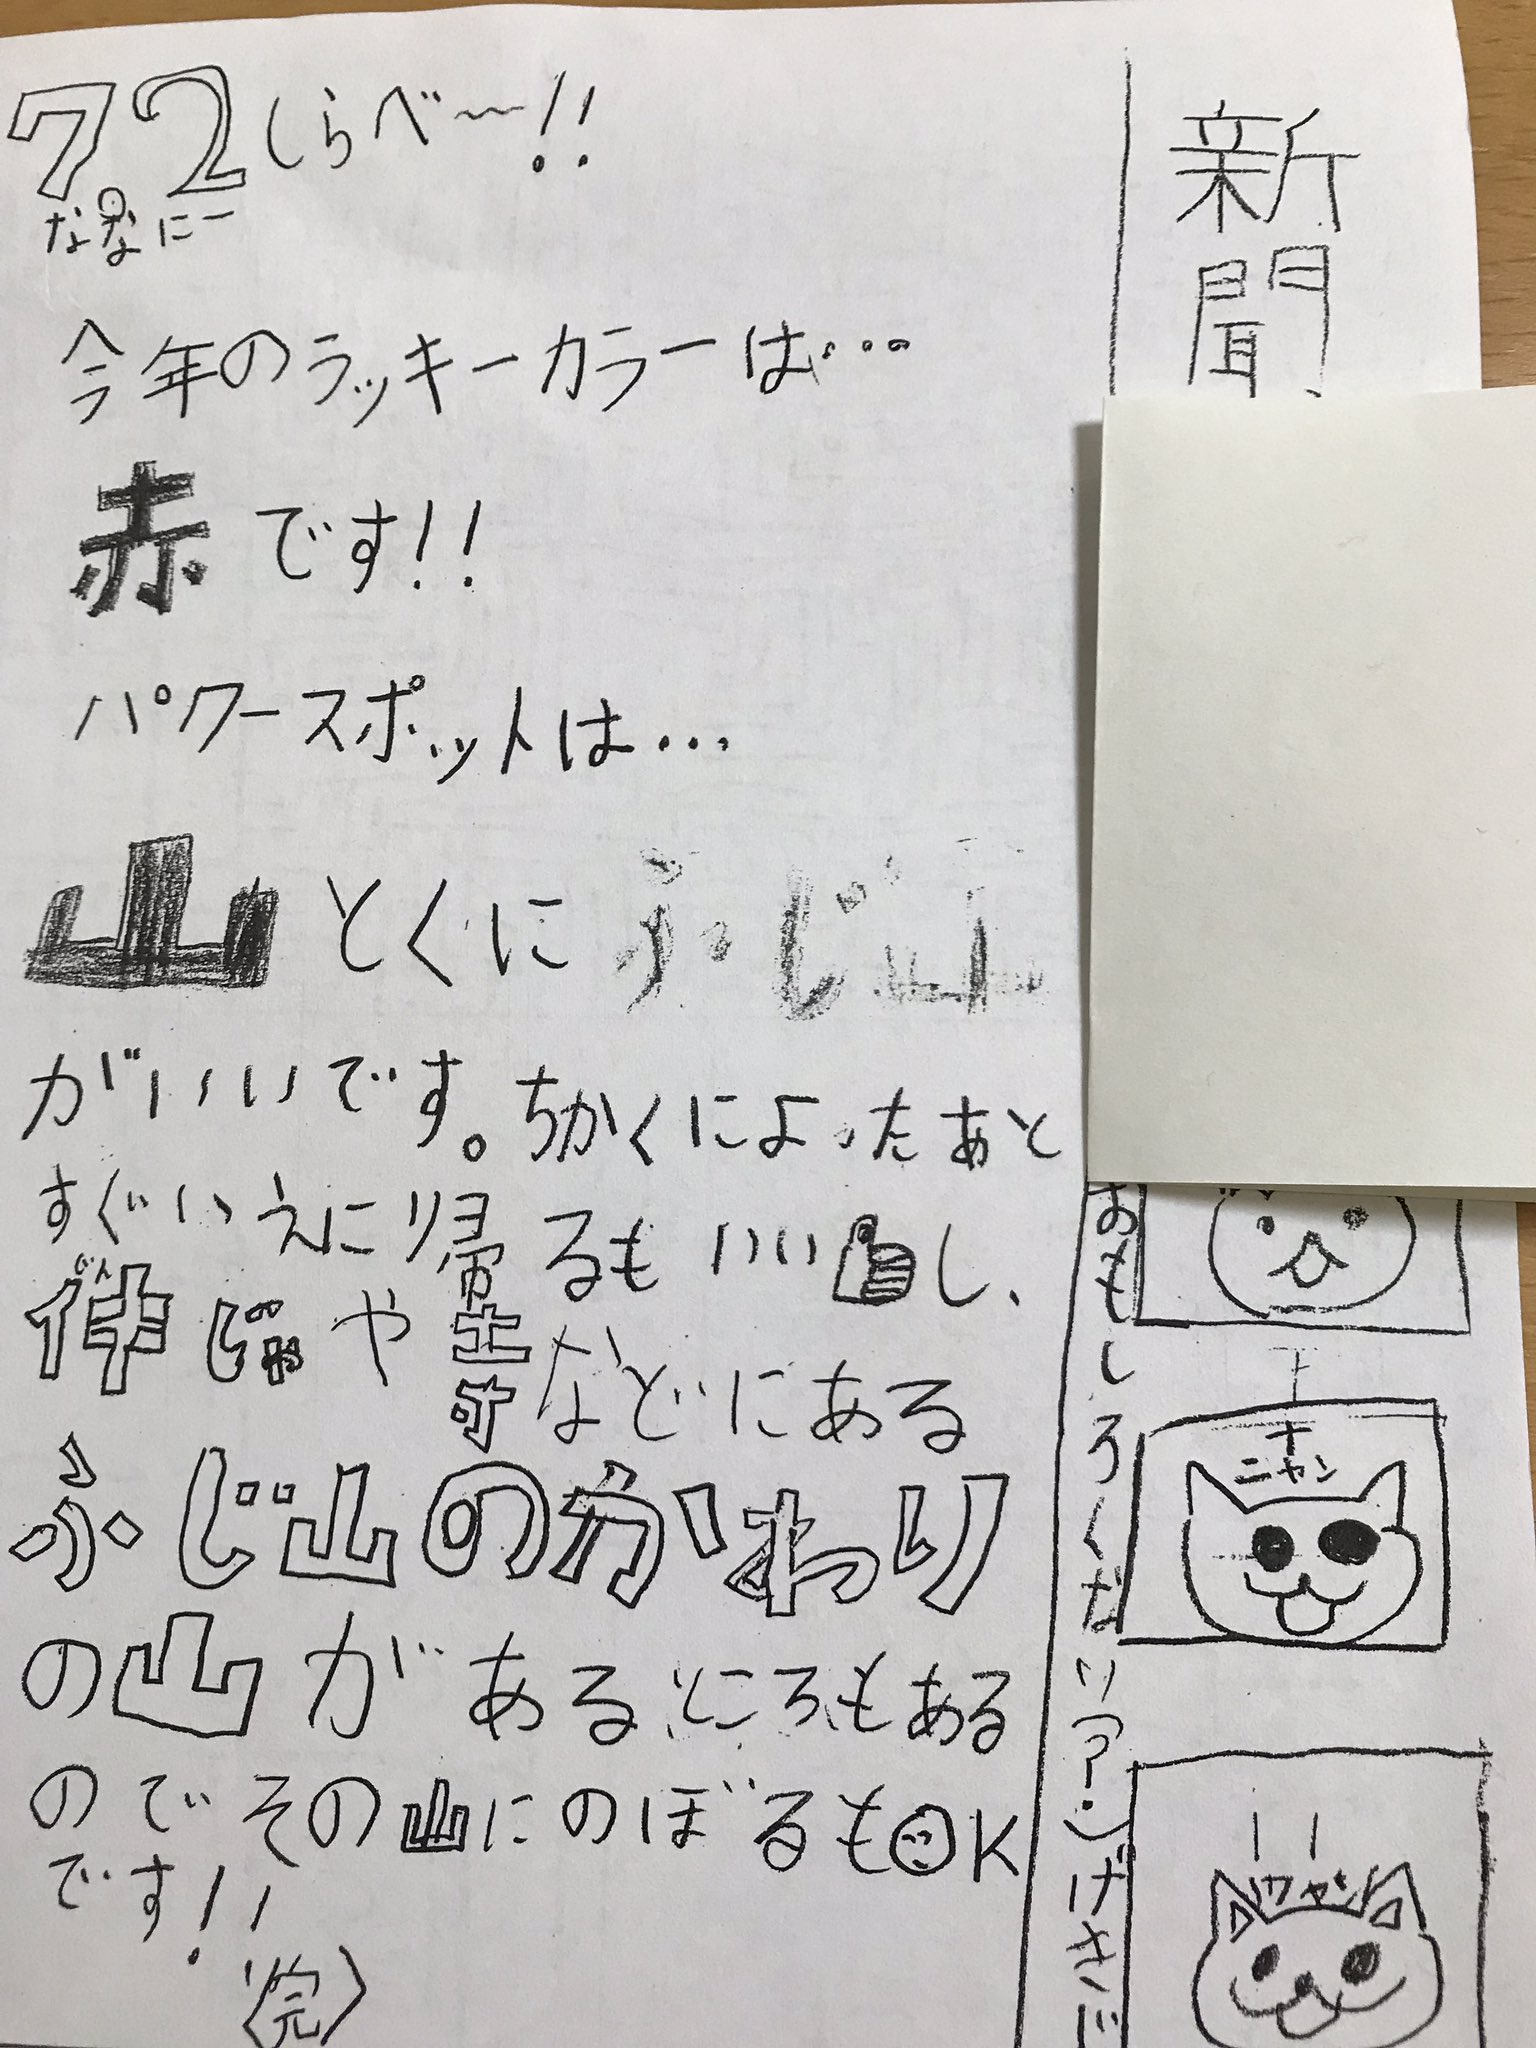 新聞
72しらべ〜!!
ななにー
今年のラッキーカラーは…
赤です!!
パワースポットは…
山とくにふじ山
がいいです。ちかくによったあと
すぐいえに帰るもいいし、
神じゃや寺などにある
ふじ山のかわり
の山があるところもある
のでその山にのぼるもOK
です!!
〈完〉
おもしろくだ
ニャン
ワン